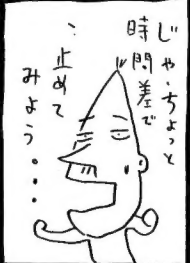 じゃ・ちょっと
時間差で
：止めて
みよう・・・